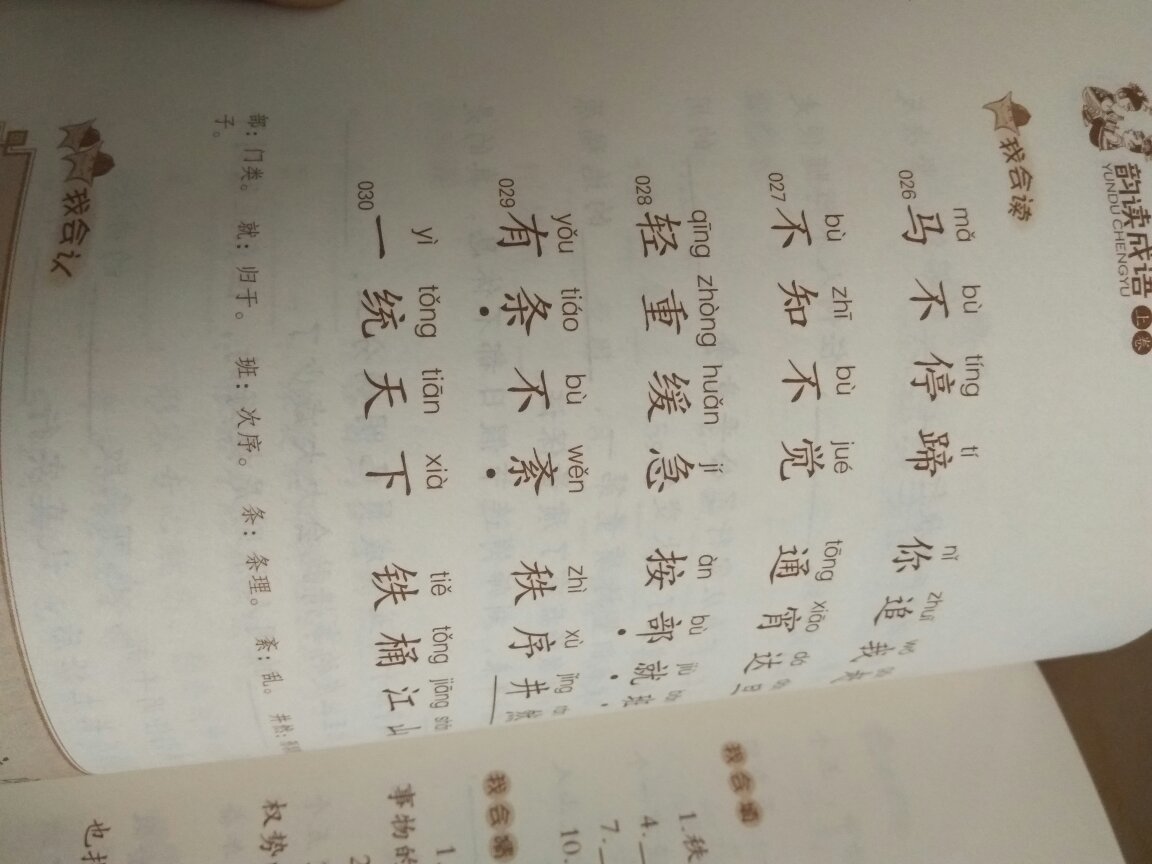 韵读成语 上卷
YUNDU CHENGYU
我会读
mǎ bù tíng tí nǐ zhuī wǒ
026 马不停蹄 你追我
bù zhī bù jué tōng xiāo dá
027 不知不觉 通宵达旦
qīng zhòng huǎn jí àn bù jiù
028 轻重缓急 按部就班
yǒu tiáo bù wěn zhì xù jǐng
029 有条不紊 秩序井然
yì tǒng tiān xià tiě tǒng jiāng
030 一统天下 铁桶江山
部：门类。 就：归于。 班：次序。 条：条理。 紊：乱。 井然：
子。
我会认
我会填
1.秩
4.
7.
10.
我会
1.
事物的
2
权势
也